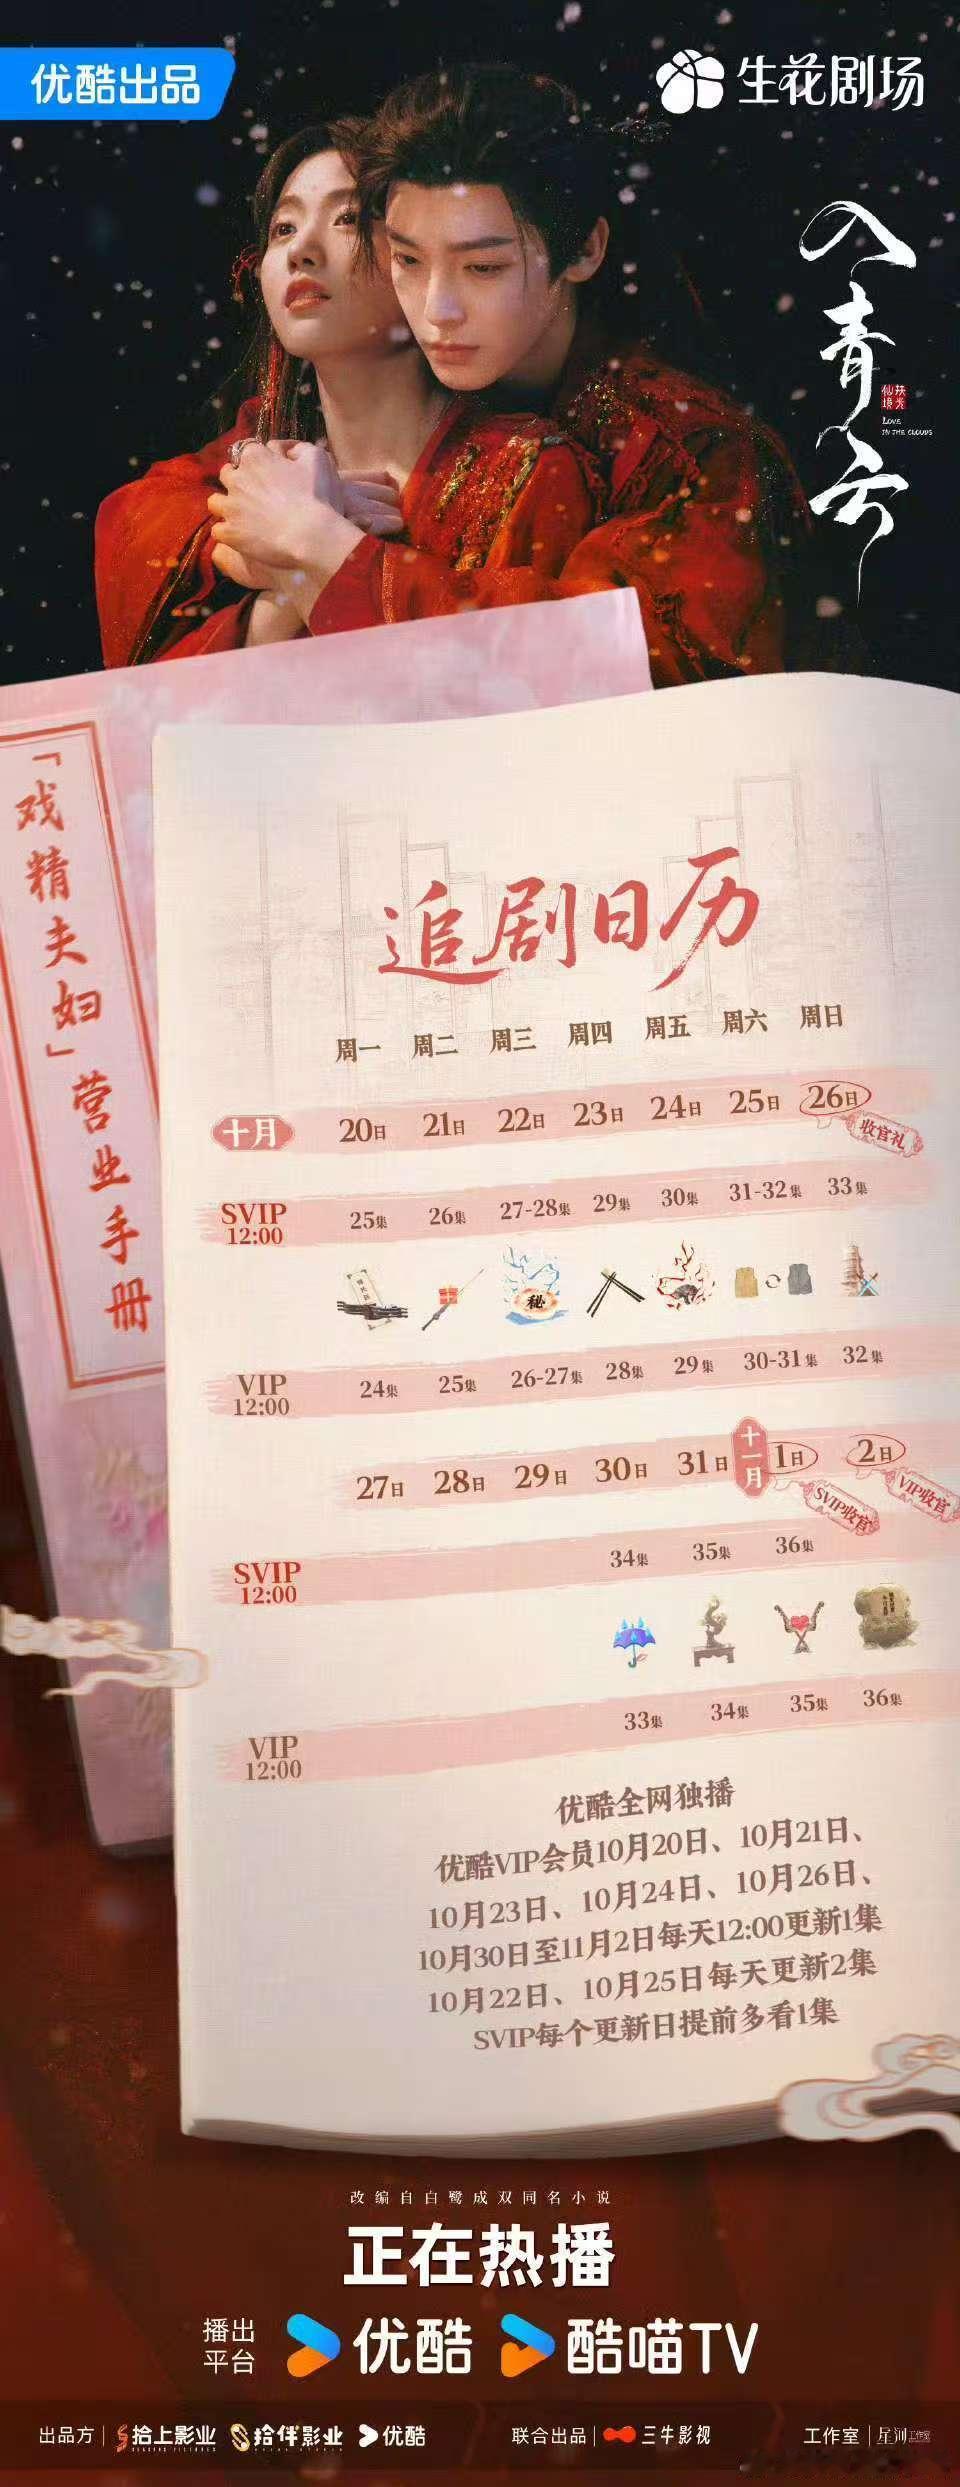 优酷出品
生花剧场
入青云
扶光
仙境
LOVE
IN THE CLOUDS
「戏精夫妇」营业手册
追剧日历
周一 周二 周三 周四 周五 周六 周日
十月 20日 21日 22日 23日 24日 25日 26日
收官礼
SVIP 25集 26集 27-28集 29集 30集 31-32集 33集
12:00
秘
VIP 24集 25集 26-27集 28集 29集 30-31集 32集
12:00
27日 28日 29日 30日 31日 十一月 1日 2日
SVIP收官 VIP收官
SVIP 34集 35集 36集
12:00
VIP 33集 34集 35集 36集
12:00
优酷全网独播
优酷VIP会员10月20日、10月21日、
10月23日、10月24日、10月26日、
10月30日至11月2日每天12:00更新1集
10月22日、10月25日每天更新2集
SVIP每个更新日提前多看1集
改编自白鹭成双同名小说
正在热播
播出平台 优酷 酷喵TV
出品方 拾上影业 拾伴影业 优酷 联合出品 三牛影视 工作室 星河工作室